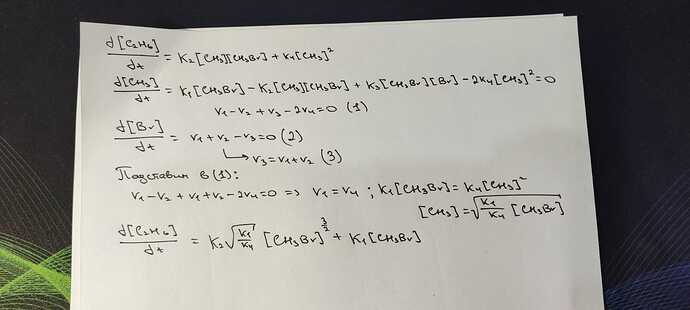 d[C₂H₆]/dt = K₂[CH₃][CH₃Br] + K₄[CH₃]²
d[CH₃]/dt = K₁[CH₃Br] - K₂[CH₃][CH₃Br] + K₃[CH₃Br][Br] - 2K₄[CH₃]² = 0
v₁ - v₂ + v₃ - 2v₄ = 0 (1)
d[Br]/dt = v₁ + v₂ - v₃ = 0 (2)
↳ v₃ = v₁ + v₂ (3)
Подставим в (1):
v₁ - v₂ + v₁ + v₂ - 2v₄ = 0 => v₁ = v₄ ; K₁[CH₃Br] = K₄[CH₃]²
[CH₃] = √(K₁/K₄ [CH₃Br])
d[C₂H₆]/dt = K₂ √(K₁/K₄) [CH₃Br]^(3/2) + K₁[CH₃Br]